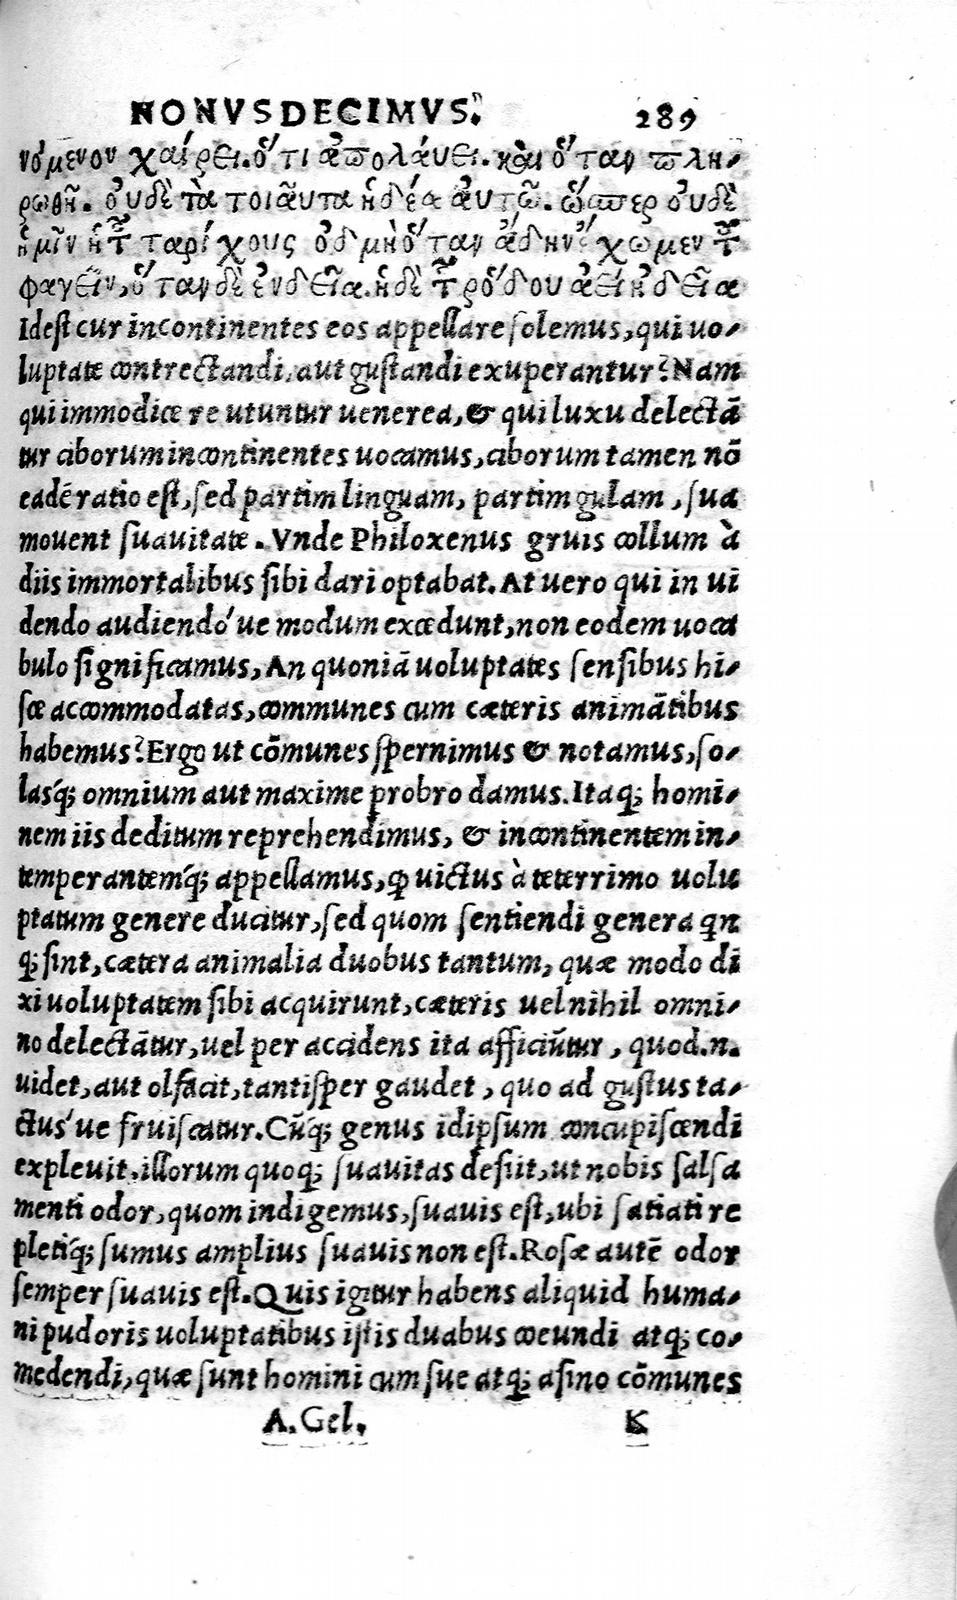 NONVSDECIMVS. 289
νόμενον χαίρει. ὅτι ἀπολάυει. καὶ ὅταν πλη-
ρωθῇ. ὀυδὲ τὰ τοιᾶυτα ἡδέα ἀυτῶ. ὥσπερ ὀυδὲ
ἡμῖν ἡ τοῦ ταρίχους ὀδμὴ ὅταν ἄδην ἔχωμεν τοῦ
φαγεῖν, ὅταν δὲ ἐνδεῖα. ἡ δὲ τοῦ ῥόδου ἀεὶ ἡδεῖα
Idest cur incontinentes eos appellare solemus, qui uo-
luptate contrectandi, aut gustandi exuperantur? Nam
qui immodice re utuntur uenerea, & qui luxu delectā
tur ciborum incontinentes uocamus, ciborum tamen nō
eadē ratio est, sed partim linguam, partim gulam, sua
mouent suauitate. Vnde Philoxenus gruis collum à
diis immortalibus sibi dari optabat. At uero qui in ui
dendo audiendo´ue modum excedunt, non eodem uoca
bulo significamus, An quoniā uoluptates sensibus hi-
sce accommodatas, communes cum cæteris animātibus
habemus? Ergo ut cōmunes spernimus & notamus, so-
lasq́; omnium aut maxime probro damus. Itaq; homi-
nem iis deditum reprehendimus, & incontinentem in-
temperantemq́; appellamus, ꝙ uictus à teterrimo uolu
ptatum genere ducitur, sed quom sentiendi genera qn
q; sint, cætera animalia duobus tantum, quæ modo di
xi uoluptatem sibi acquirunt, cæteris uel nihil omni-
no delectātur, uel per accidens ita afficiūtur, quod.n.
uidet, aut olfacit, tantisper gaudet, quo ad gustus ta-
ctus´ue fruiscatur. Cūq; genus idipsum concupiscendi
expleuit, illorum quoq; suauitas desiit, ut nobis salsa
menti odor, quom indigemus, suauis est, ubi satiati re
pletiq́; sumus amplius suauis non est. Rosæ autē odor
semper suauis est. Quis igitur habens aliquid huma-
ni pudoris uoluptatibus istis duabus coeundi atq; co-
medendi, quæ sunt homini cum sue atq; asino cōmunes
A. Gel. K